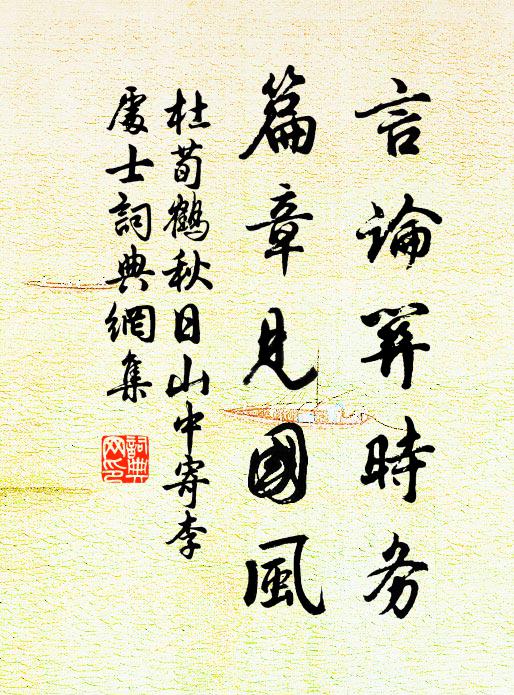 言論関時务
篇章見國風
杜荀鶴秋日山中寄李
處士詞典網集
詞典网印